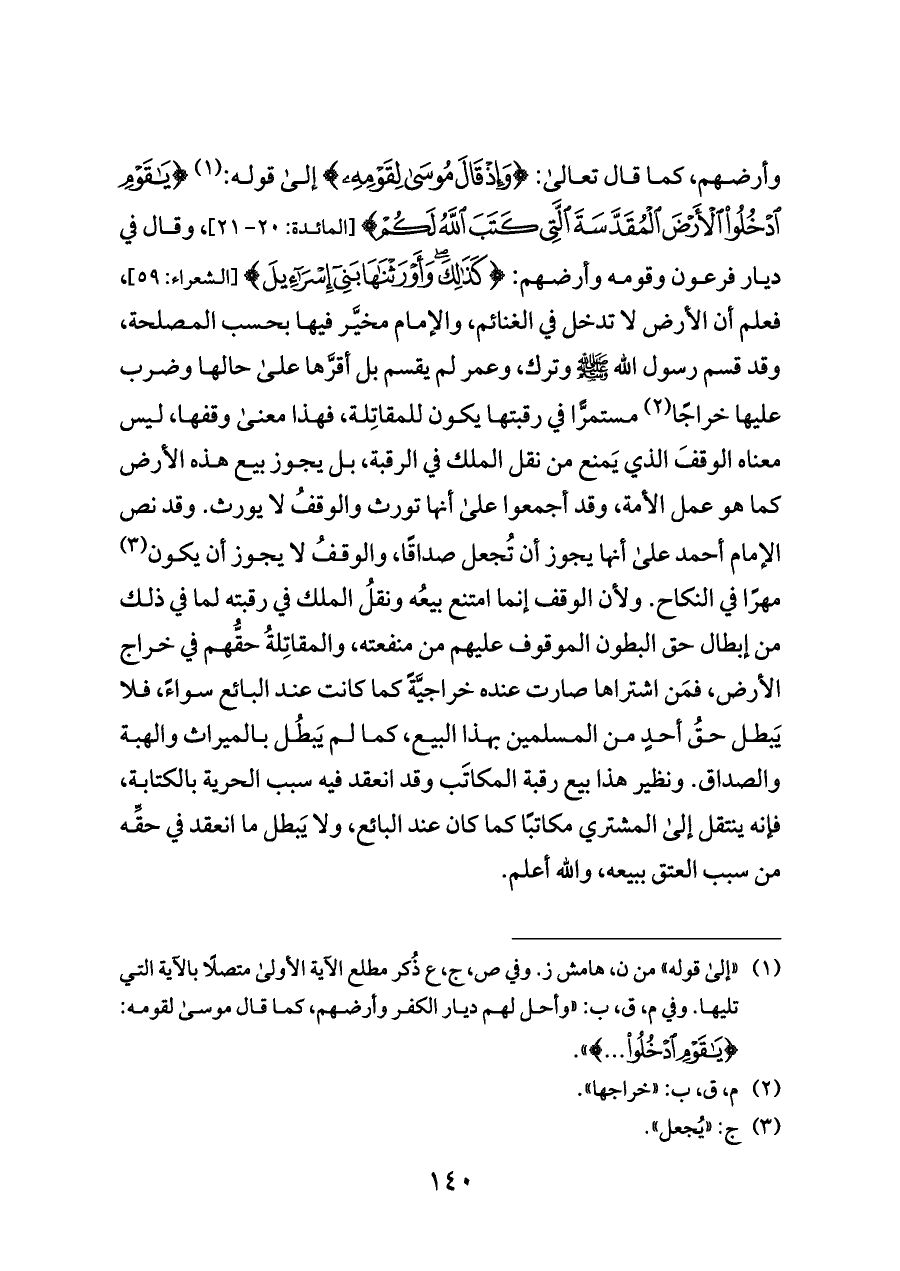 وأرضهم، كما قال تعالىٰ: ﴿وَإِذْ قَالَ مُوسَىٰ لِقَوْمِهِۦ﴾ إلىٰ قوله:(١) ﴿يَـٰقَوْمِ
ٱدْخُلُوا۟ ٱلْأَرْضَ ٱلْمُقَدَّسَةَ ٱلَّتِى كَتَبَ ٱللَّهُ لَكُمْ﴾ [المائدة: ٢٠-٢١]، وقال في
ديار فرعون وقومه وأرضهم: ﴿كَذَٰلِكَۖ وَأَوْرَثْنَـٰهَا بَنِىٓ إِسْرَٰٓءِيلَ﴾ [الشعراء: ٥٩]،
فعلم أن الأرض لا تدخل في الغنائم، والإمام مخيَّر فيها بحسب المصلحة،
وقد قسم رسول الله ﷺ وترك، وعمر لم يقسم بل أقرَّها علىٰ حالها وضرب
عليها خراجًا(٢) مستمرًّا في رقبتها يكون للمقاتِلة، فهذا معنىٰ وقفها، ليس
معناه الوقفَ الذي يَمنع من نقل الملك في الرقبة، بل يجوز بيع هذه الأرض
كما هو عمل الأمة، وقد أجمعوا علىٰ أنها تورث والوقفُ لا يورث. وقد نص
الإمام أحمد علىٰ أنها يجوز أن تُجعل صداقًا، والوقفُ لا يجوز أن يكون(٣)
مهرًا في النكاح. ولأن الوقف إنما امتنع بيعُه ونقلُ الملك في رقبته لما في ذلك
من إبطال حق البطون الموقوف عليهم من منفعته، والمقاتِلةُ حقُّهم في خراج
الأرض، فمَن اشتراها صارت عنده خراجيَّةً كما كانت عند البائع سواءً، فلا
يَبطل حقُّ أحدٍ من المسلمين بهذا البيع، كما لم يَبطُل بالميراث والهبة
والصداق. ونظير هذا بيع رقبة المكاتَب وقد انعقد فيه سبب الحرية بالكتابة،
فإنه ينتقل إلىٰ المشتري مكاتبًا كما كان عند البائع، ولا يَبطل ما انعقد في حقِّه
من سبب العتق ببيعه، والله أعلم.
(١) «إلىٰ قوله» من ن، هامش ز. وفي ص، ج، ع ذُكر مطلع الآية الأولىٰ متصلًا بالآية التي
تليها. وفي م، ق، ب: «وأحل لهم ديار الكفر وأرضهم، كما قال موسىٰ لقومه:
﴿يَـٰقَوْمِ ٱدْخُلُوا۟...﴾».
(٢) م، ق، ب: «خراجها».
(٣) ج: «يُجعل».
١٤٠